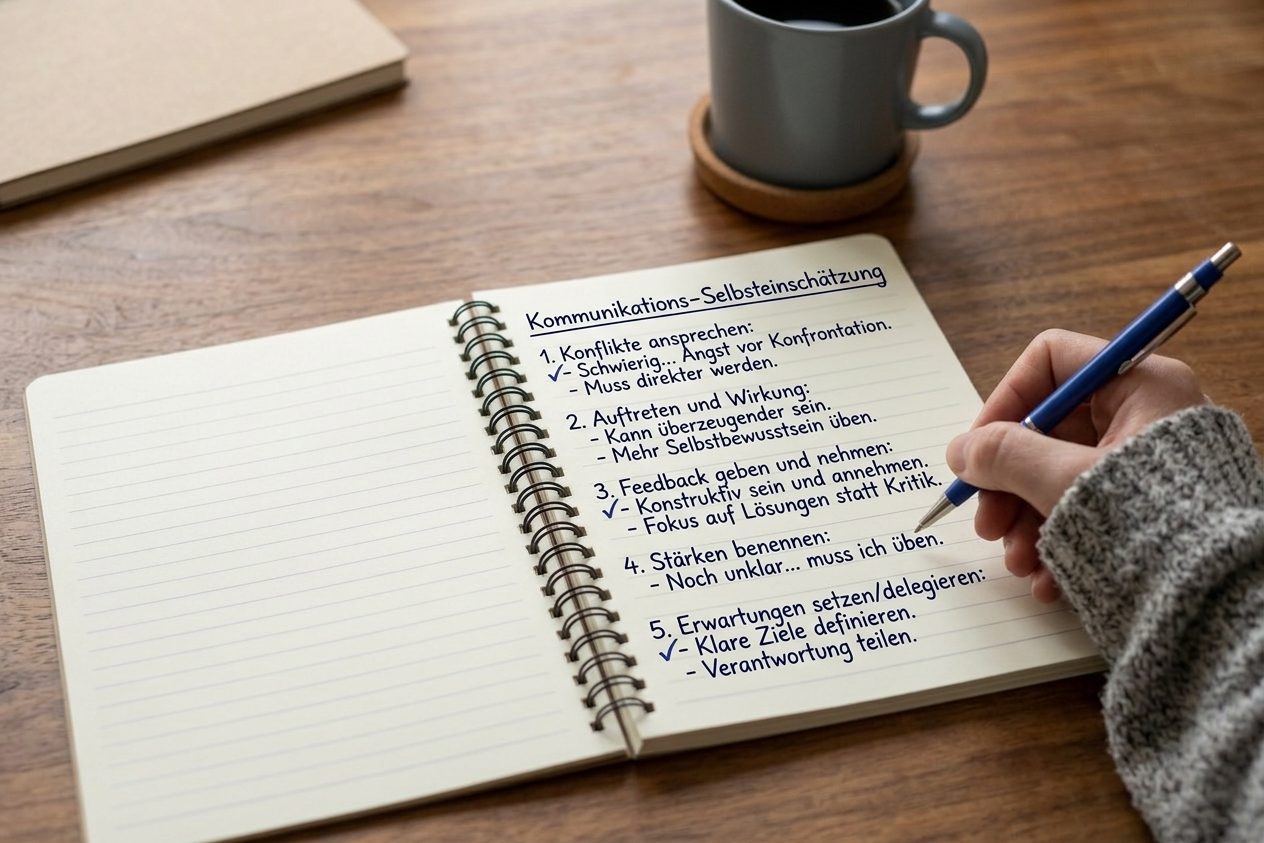 Kommunikations-Selbsteinschätzung
1. Konflikte ansprechen:
✓- Schwierig... Angst vor Konfrontation.
- Muss direkter werden.
2. Auftreten und Wirkung:
- Kann überzeugender sein.
- Mehr Selbstbewusstsein üben.
3. Feedback geben und nehmen:
✓- Konstruktiv sein und annehmen.
- Fokus auf Lösungen statt Kritik.
4. Stärken benennen:
- Noch unklar... muss ich üben.
5. Erwartungen setzen/delegieren:
✓- Klare Ziele definieren.
- Verantwortung teilen.